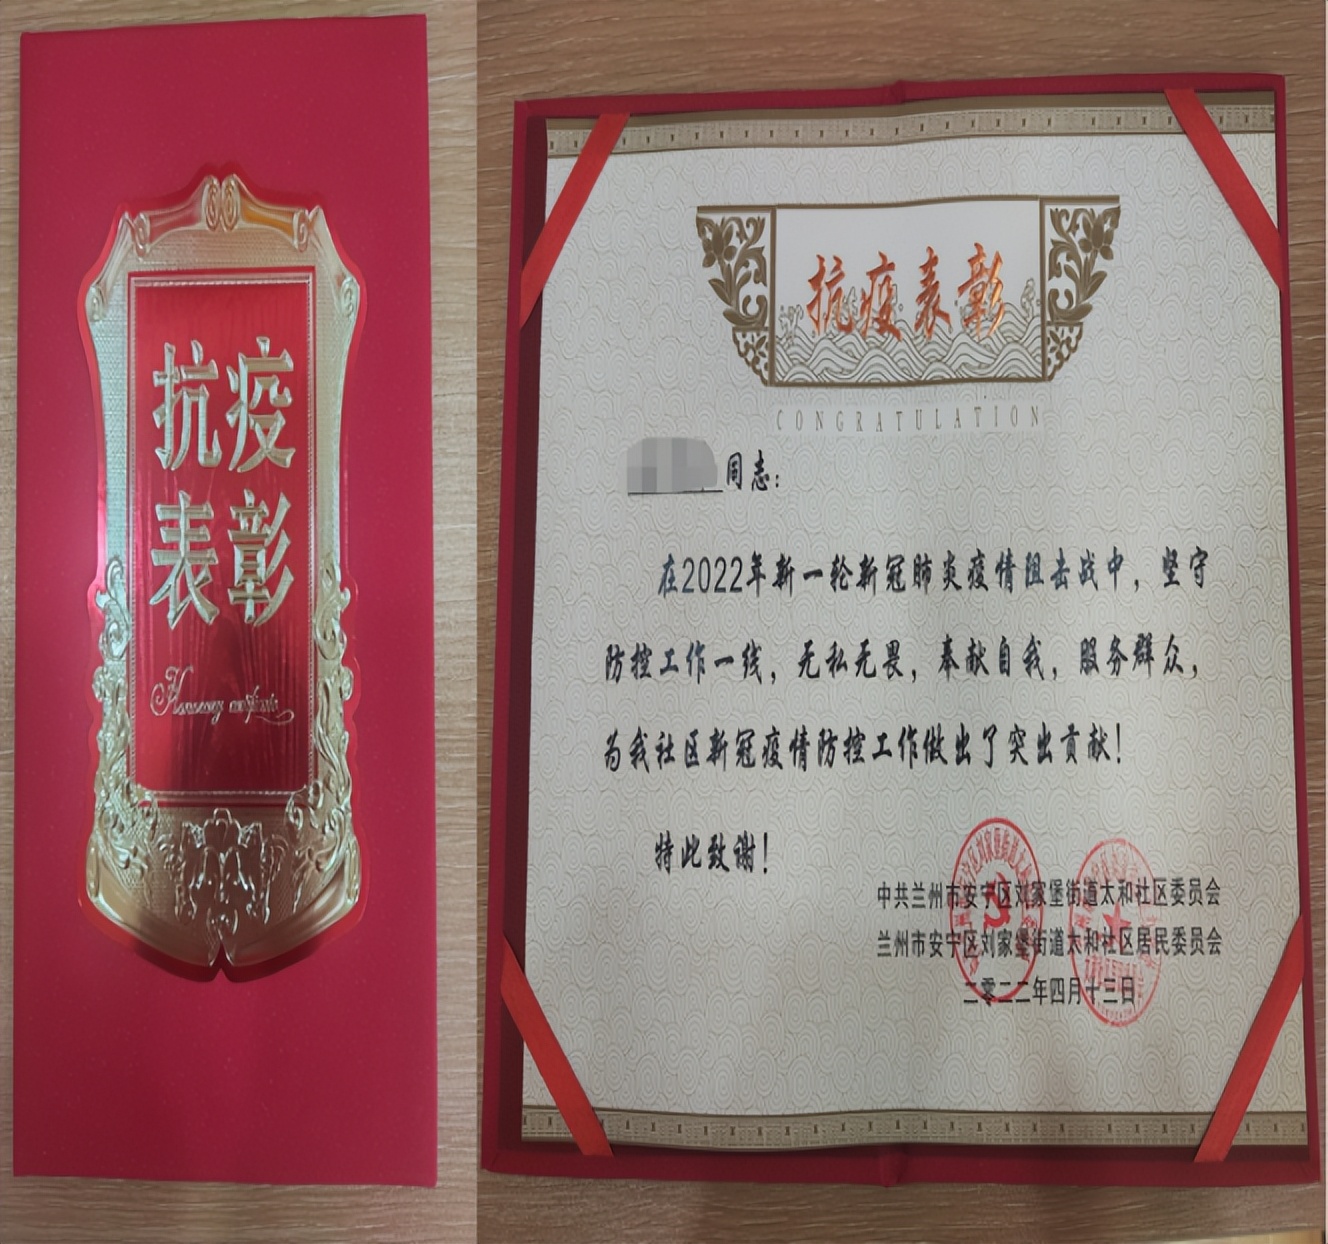 抗疫
表彰
抗疫表彰
CONGRATULATION
同志：
在2022年新一轮新冠肺炎疫情阻击战中，坚守
防控工作一线，无私无畏，奉献自我，服务群众，
为我社区新冠疫情防控工作做出了突出贡献！
特此致谢！
中共兰州市安宁区刘家堡街道太和社区委员会
兰州市安宁区刘家堡街道太和社区居民委员会
二零二二年四月十三日